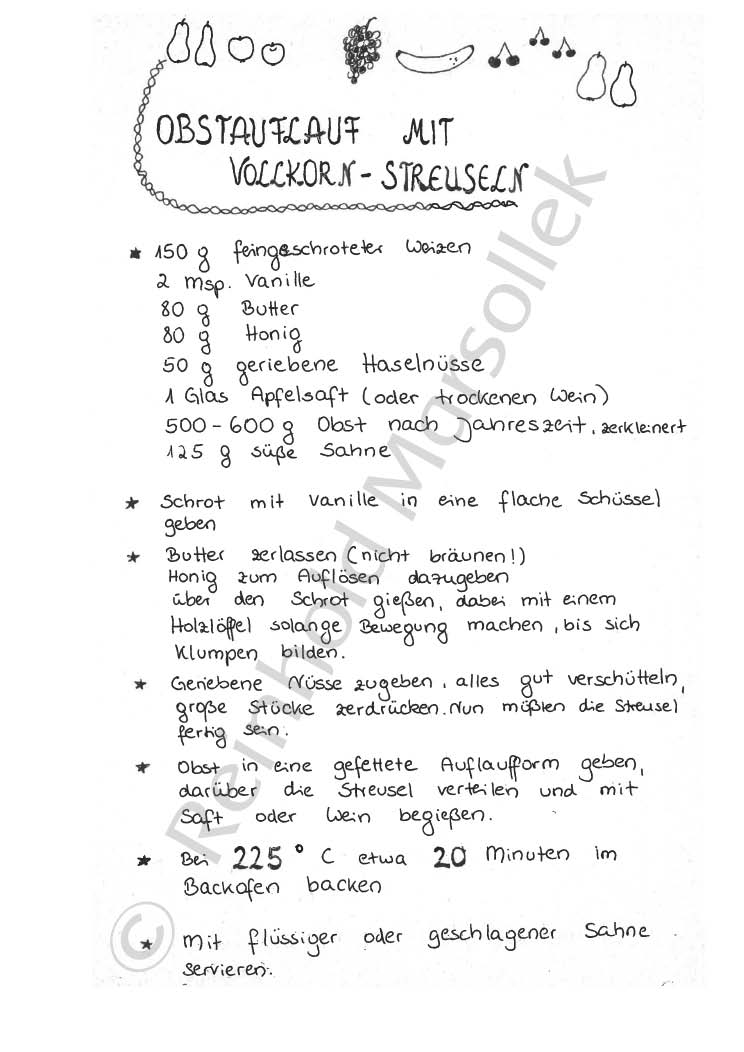 OBSTAUFLAUF MIT
VOLLKORN-STREUSELN
★ 150 g feingeschroteter Weizen
2 Msp. Vanille
80 g Butter
80 g Honig
50 g geriebene Haselnüsse
1 Glas Apfelsaft (oder trockenen Wein)
500-600 g Obst nach Jahreszeit, zerkleinert
125 g süße Sahne
★ Schrot mit Vanille in eine flache Schüssel
geben
★ Butter zerlassen (nicht bräunen!)
Honig zum Auflösen dazugeben
über den Schrot gießen, dabei mit einem
Holzlöffel solange Bewegung machen, bis sich
Klumpen bilden.
★ Geriebene Nüsse zugeben, alles gut verschütteln,
große Stücke zerdrücken. Nun müßten die Streusel
fertig sein.
★ Obst in eine gefettete Auflaufform geben,
darüber die Streusel verteilen und mit
Saft oder Wein begießen.
★ Bei 225° C etwa 20 Minuten im
Backofen backen
★ Mit flüssiger oder geschlagener Sahne
servieren.
© Reinhold Marsollek